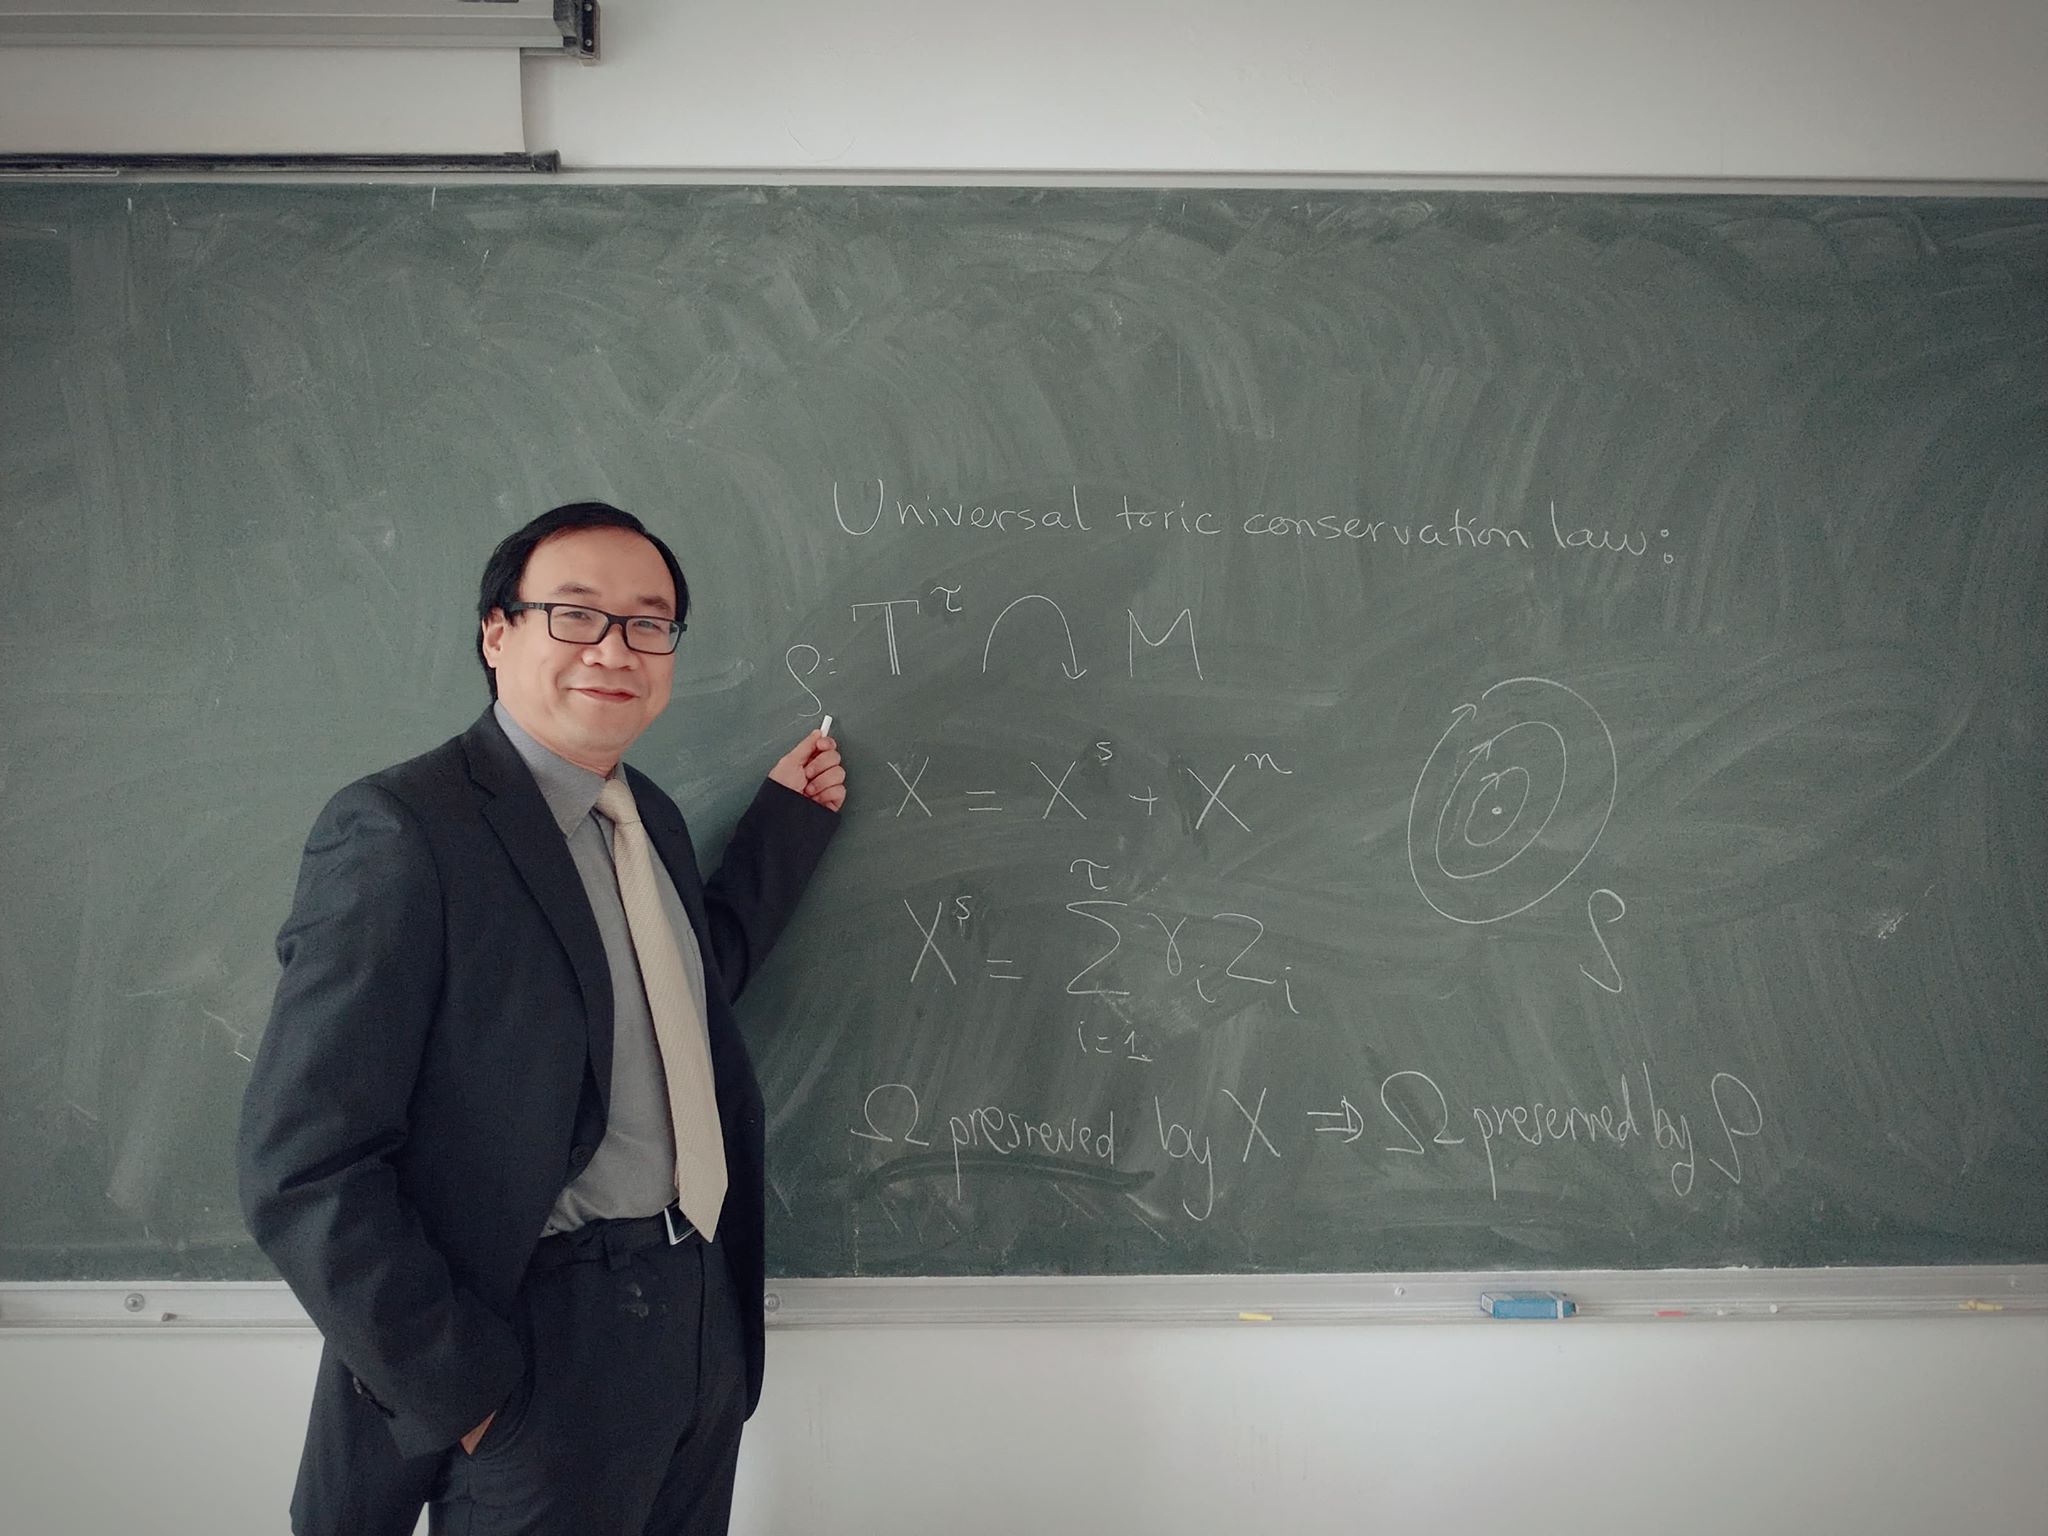 Universal toric conservation law:
ρ: 𝕋^τ ↷ M
X = X^s + X^n
X^s = Σ_{i=1}^{τ} γ_i Z_i
ρ
Ω presreved by X ⇒ Ω preserved by ρ